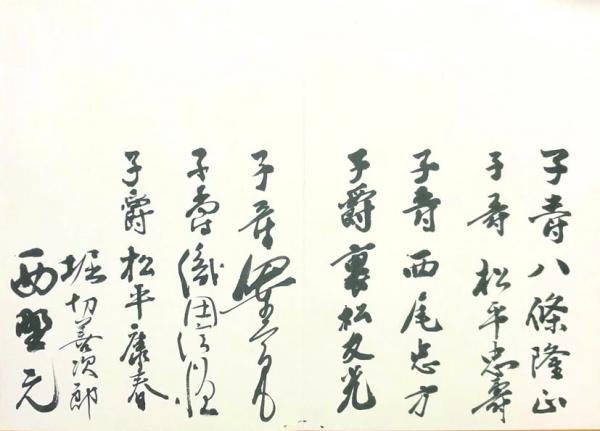 子爵八條隆正
子爵松平忠壽
子爵西尾忠方
子爵裏松友光
子爵
子爵織田信恒
子爵松平康春
堀切善次郎
西野元